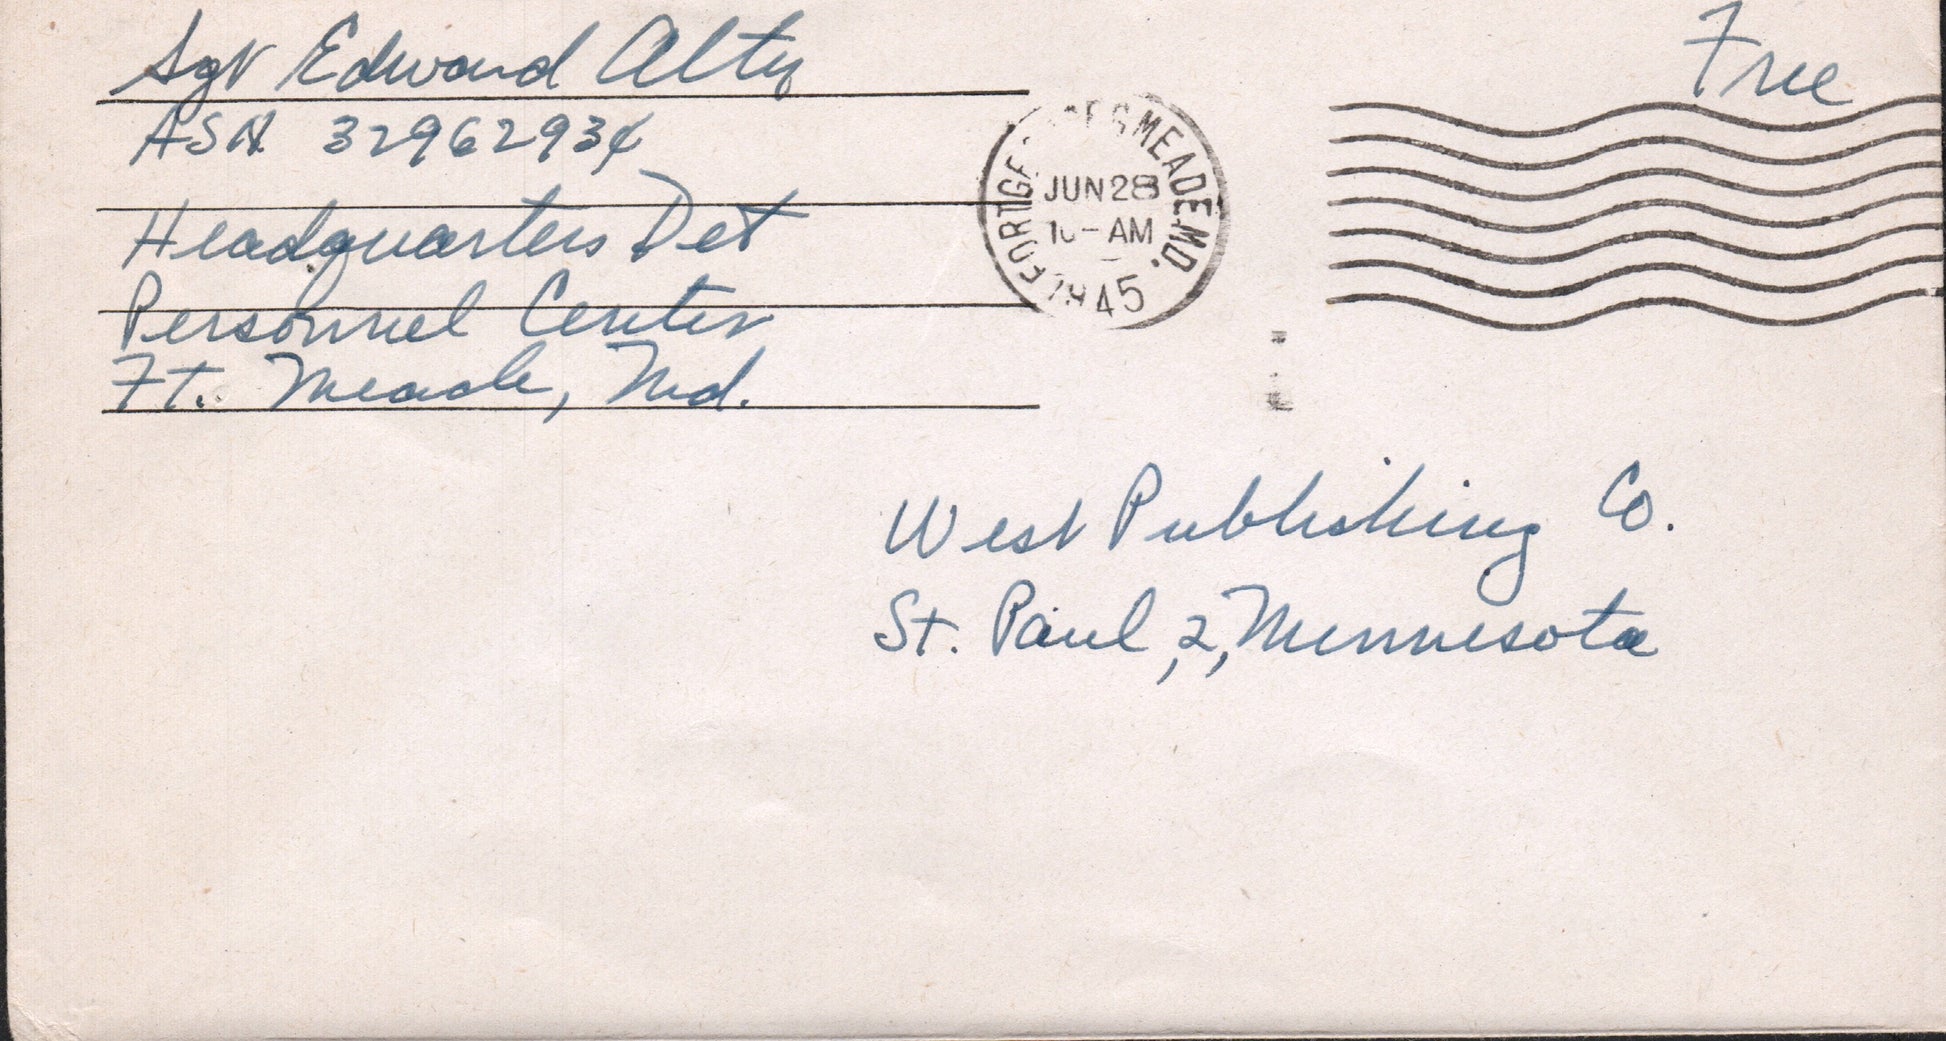 Sgt Edward Alty
ASN. 32962934
Headquarters Det
Personnel Center
Ft. Meade, Md.
Free
FORT GEORGE G MEADE, MD.
JUN 28
AM
1945
West Publishing Co.
St. Paul, 2, Minnesota